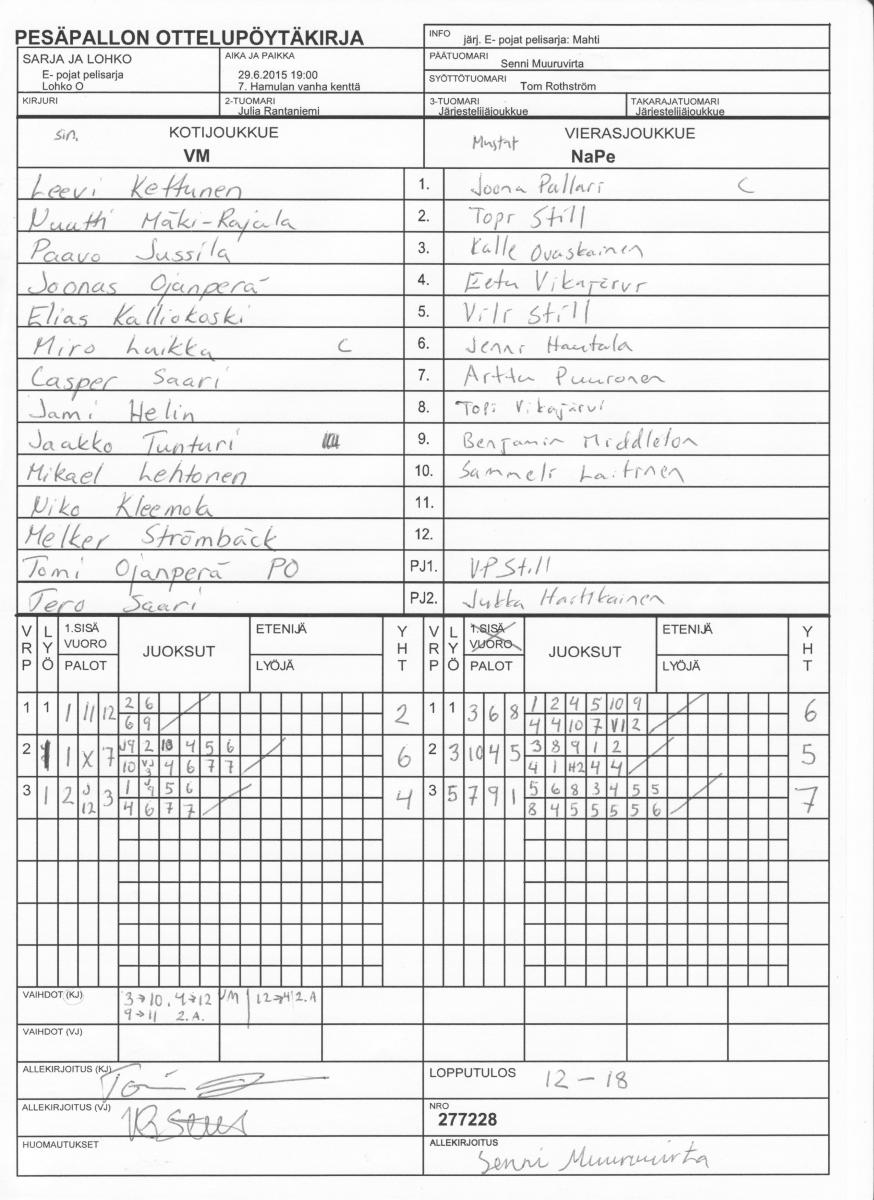 PESÄPALLON OTTELUPÖYTÄKIRJA
INFO järj. E- pojat pelisarja: Mahti
SARJA JA LOHKO
E- pojat pelisarja
Lohko O
AIKA JA PAIKKA
29.6.2015 19:00
7. Hamulan vanha kenttä
PÄÄTUOMARI
Senni Muuruvirta
SYÖTTÖTUOMARI
Tom Rothström
KIRJURI
2-TUOMARI
Julia Rantaniemi
3-TUOMARI
Järjestelijäjoukkue
TAKARAJATUOMARI
Järjestelijäjoukkue
sin. KOTIJOUKKUE
VM
Mustat VIERASJOUKKUE
NaPe
Leevi Kettunen 1. Joona Pallari C
Nuutti Mäki-Rajala 2. Topi Still
Paavo Jussila 3. Kalle Ovaskainen
Joonas Ojanperä 4. Eetu Vikajärvi
Elias Kalliokoski 5. Vili Still
Miro Luikka C 6. Jenni Hautala
Casper Saari 7. Arttu Puuronen
Jami Helin 8. Topi Vikajärvi
Jaakko Tunturi 9. Benjamin Middleton
Mikael Lehtonen 10. Sammeli Laitinen
Niko Kleemola 11.
Melker Strömbäck 12.
Tomi Ojanperä PO PJ1. VP Still
Tero Saari PJ2. Jukka Hartikainen
VRP LYÖ 1.SISÄ VUORO PALOT JUOKSUT ETENIJÄ LYÖJÄ YHT VRP LYÖ 1.SISÄ VUORO PALOT JUOKSUT ETENIJÄ LYÖJÄ YHT
1 1 1 11 12 2 6 2 1 1 3 6 8 1 2 4 5 10 9 6
6 9 4 4 10 7 V1 2
2 1 X 7 J9 2 10 4 5 6 6 2 3 10 4 5 3 8 9 1 2 5
10 VJ3 4 6 7 7 4 1 H2 4 4
3 1 2 J12 3 1 J9 5 6 4 3 5 7 9 1 5 6 8 3 4 5 5 7
4 6 7 7 8 4 5 5 5 5 6
VAIHDOT (KJ) 3→10, 4→12 VM 12→4 2.A
9→11 2.A.
VAIHDOT (VJ)
ALLEKIRJOITUS (KJ)
LOPPUTULOS 12 – 18
ALLEKIRJOITUS (VJ)
NRO
277228
HUOMAUTUKSET
ALLEKIRJOITUS
Senni Muuruvirta